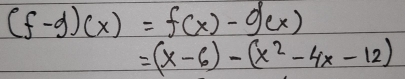 (f-g)(x) = f(x) - g(x)
= (x-6) - (x² - 4x - 12)